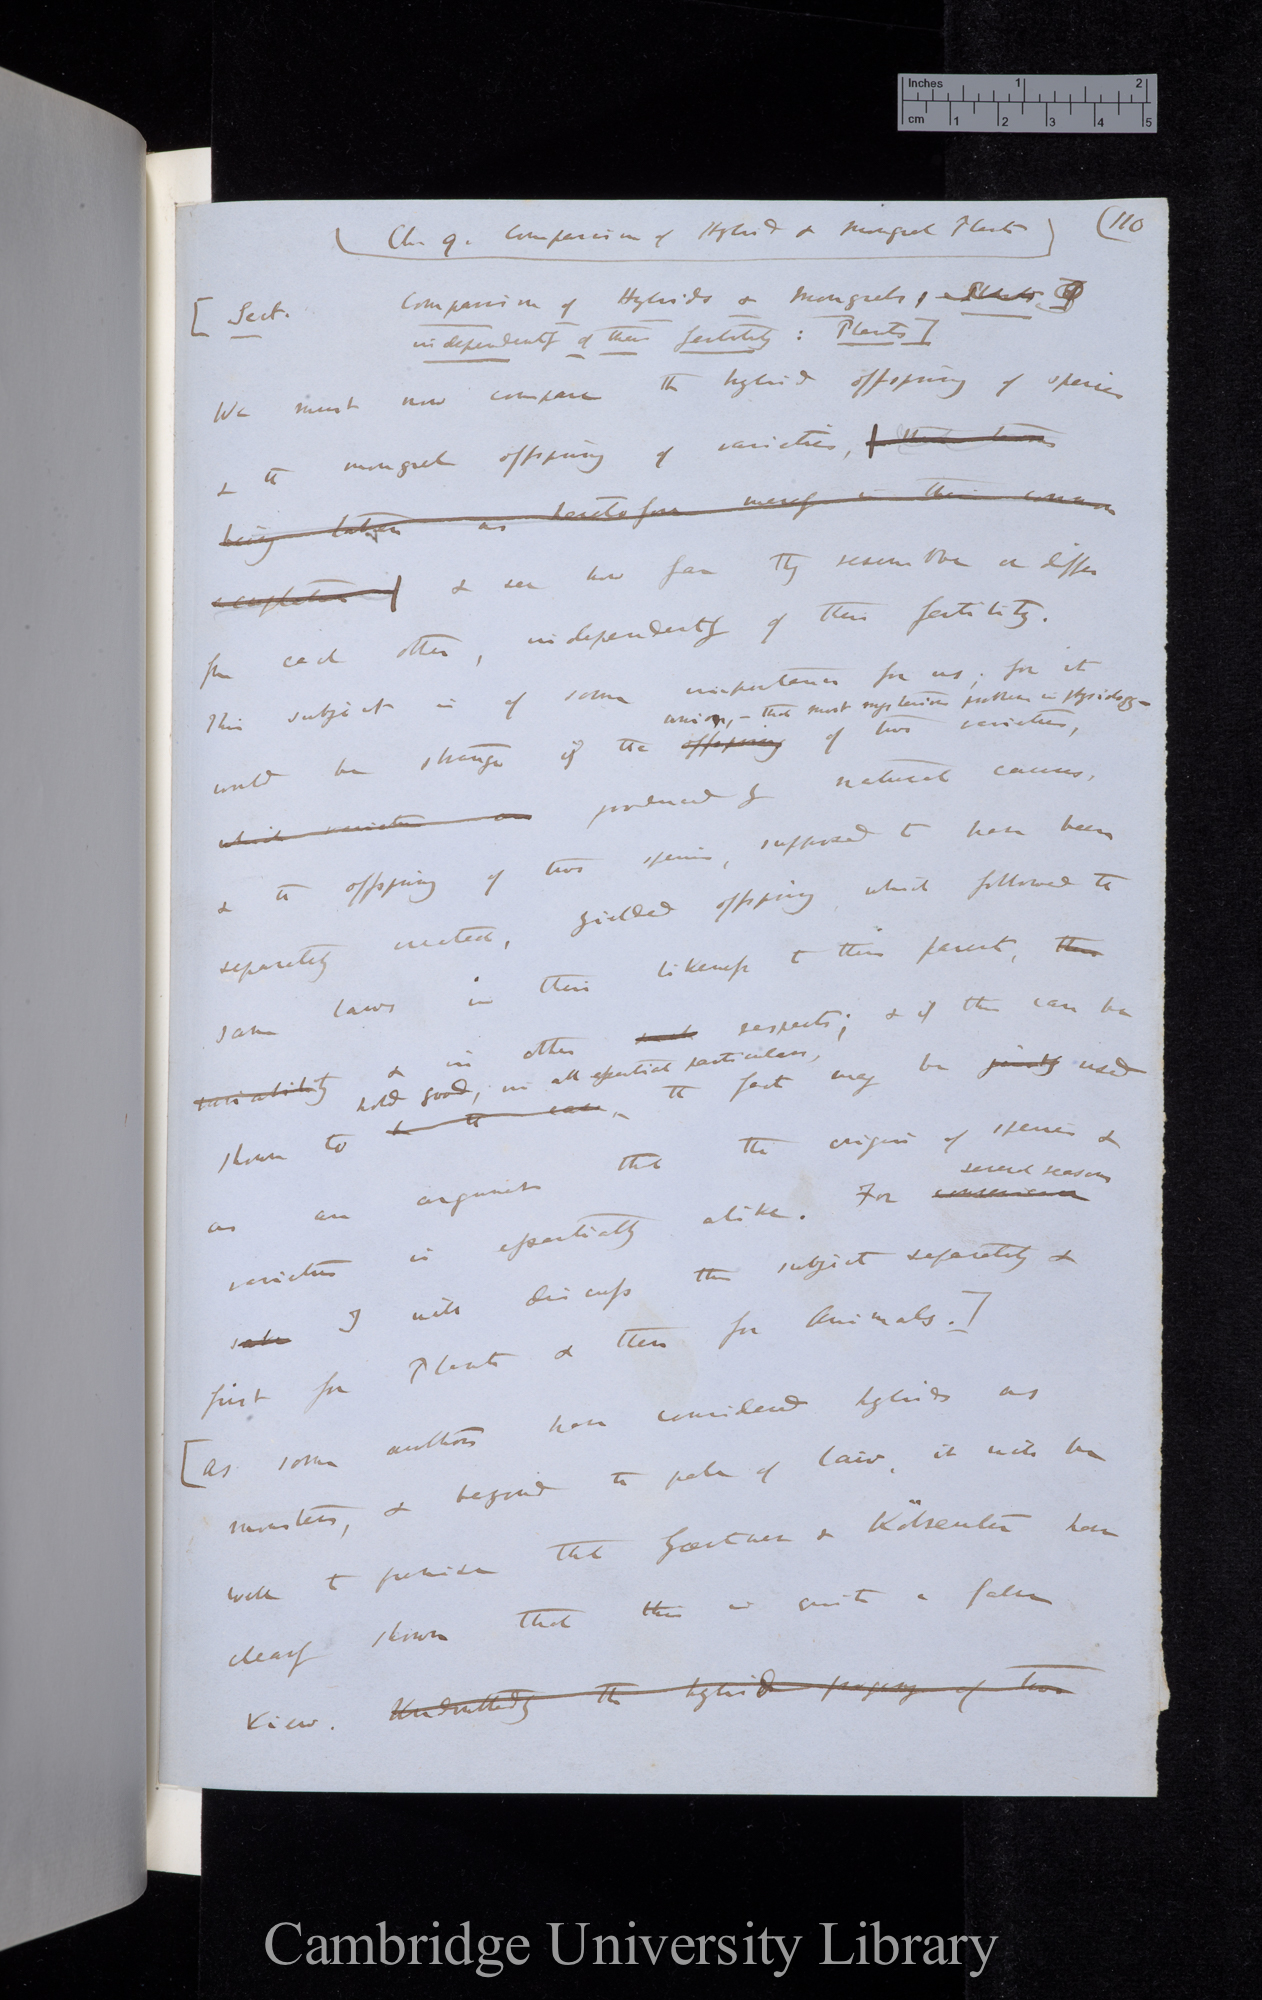 Inches 1 2
cm 1 2 3 4 5
(110
(Ch 9. Comparison of Hybrid & Mongrel Plants)
[Sect. Comparison of Hybrids & Mongrels, Plants
independently of their fertility: Plants]
We must now compare the hybrid offspring of species
& the mongrel offspring of varieties,
being taken as heretofore merely in their common
& see how far they resemble or differ
from each other, independently of their fertility.
This subject is of some importance for us; for it
union,- that most mysterious problem in physiology-
would be strange if the offspring of two varieties,
which varieties are produced by natural causes,
& the offspring of two species, supposed to have been
separately created, yielded offspring which followed the
same laws in their likeness to their parent, their
variability & in other such respects; & if this can be
hold good, in all essential particulars,
shown to be the case, the fact may be justly used
as an argument that the origin of species &
several reasons
varieties is essentially alike. For convenience
sake I will discuss the subject separately &
first for Plants & then for Animals.]
[As some authors have considered hybrids as
monsters, & beyond the pale of law, it will be
well to premise that Gærtner & Kölreuter have
clearly shown that this is quite a false
view. Undoubtedly the hybrid progeny of two
Cambridge University Library